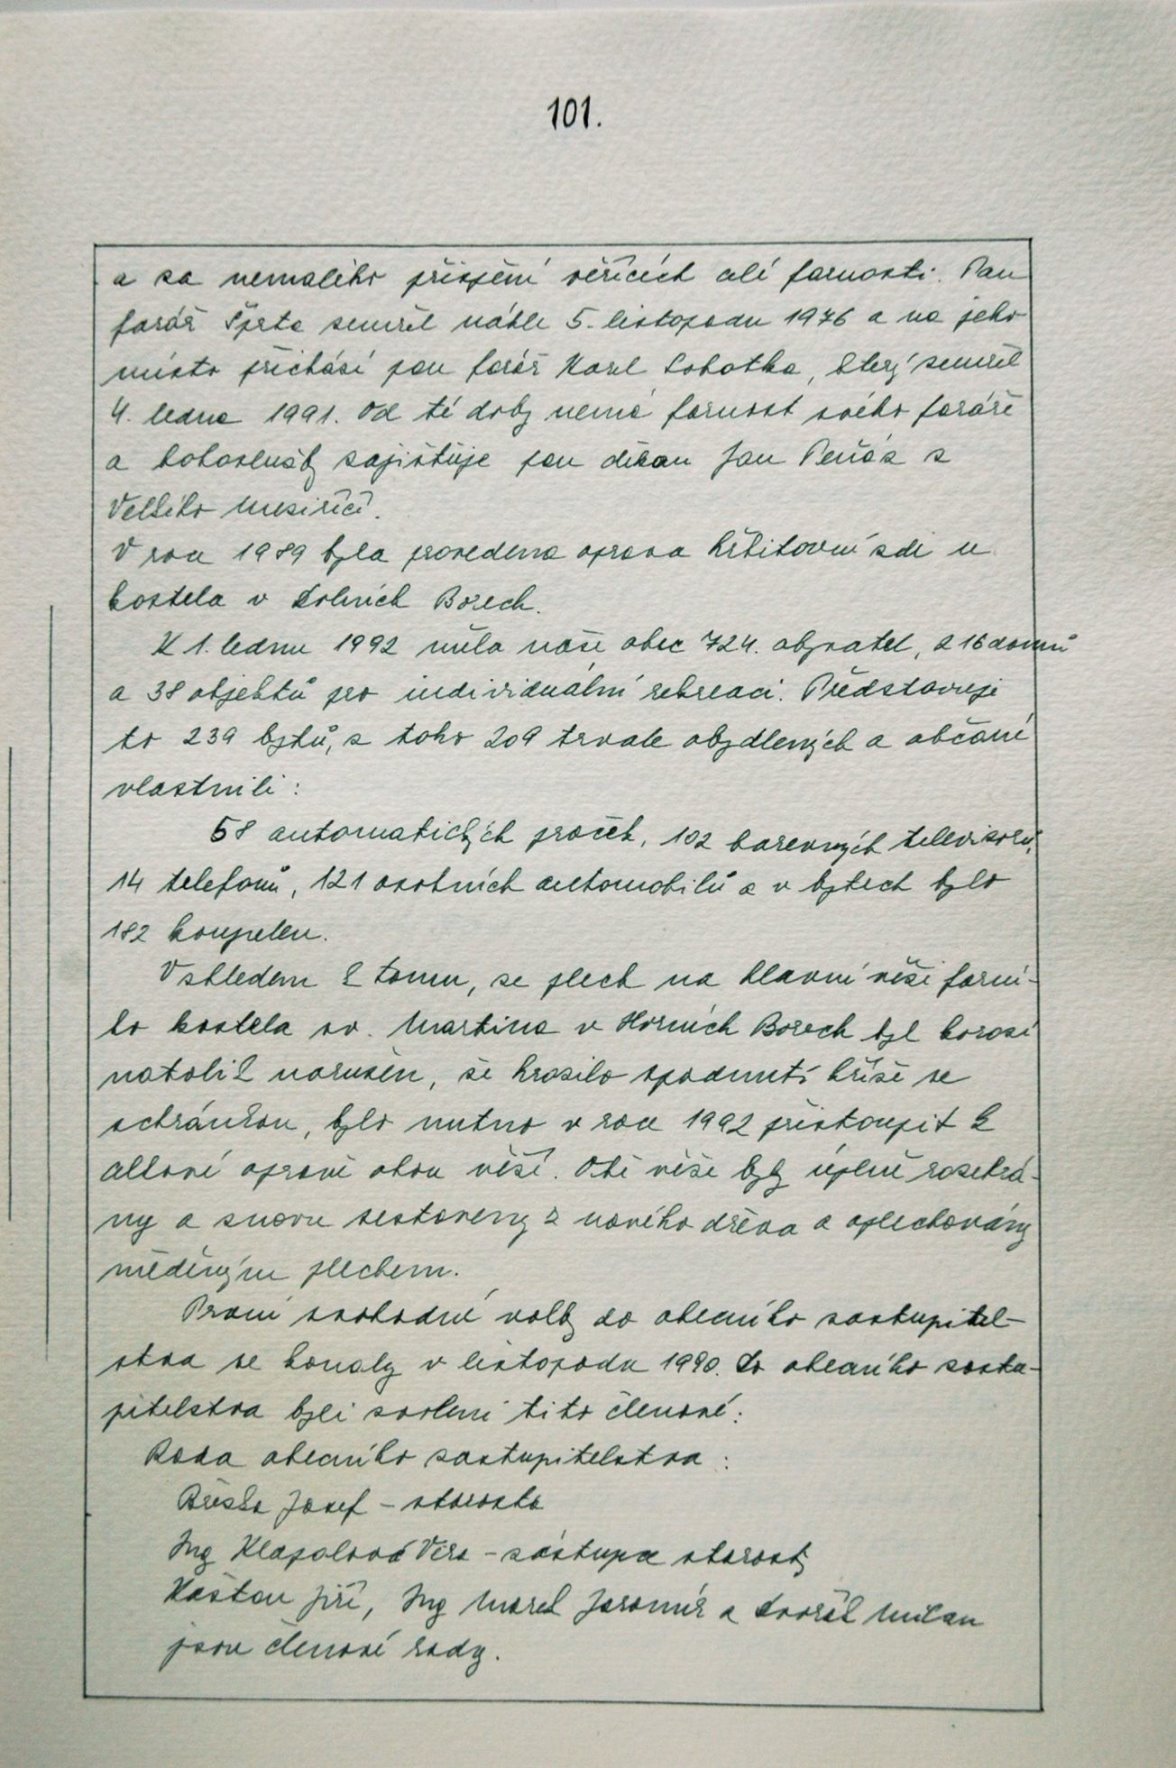 101.
a za nemalého přispění věřících celé farnosti. Pan
farář zemřel náhle 5. listopadu 1976 a na jeho
místo přichází pan farář Karel Sobotka, který zemřel
4. ledna 1991. Od té doby nemá farnost svého faráře
a bohoslužby zajišťuje pan děkan Jan Peňáz z
Velkého Meziříčí.
V roce 1989 byla provedena oprava hřbitovní zdi u
kostela v Dolních Borech.
K 1. lednu 1992 měla naše obec 724. obyvatel, 216 domů
a 38 objektů pro individuální rekreaci. Představuje
to 239 bytů, z toho 209 trvale obydlených a občané
vlastnili:
58 automatických praček, 102 barevných televizorů,
14 telefonů, 121 osobních automobilů a v bytech bylo
182 koupelen.
Vzhledem k tomu, že plech na hlavní věži farní-
ho kostela sv. Martina v Horních Borech byl korozí
natolik narušen, že hrozilo spadnutí kříže se
schránkou, bylo nutno v roce 1992 přistoupit k
celkové opravě obou věží. Obě věže byly úplně rozebrá-
ny a znovu sestaveny z nového dřeva a oplechovány
měděným plechem.
První svobodné volby do obecního zastupitel-
stva se konaly v listopadu 1990. Do obecního zastu-
pitelstva byli zvoleni tito členové:
Rada obecního zastupitelstva:
Březka Josef - starosta
Ing Klapalová Věra - zástupce starosty
Kaštan Jiří, Ing Marek Jaromír a Dvořák Milan
jsou členové rady.